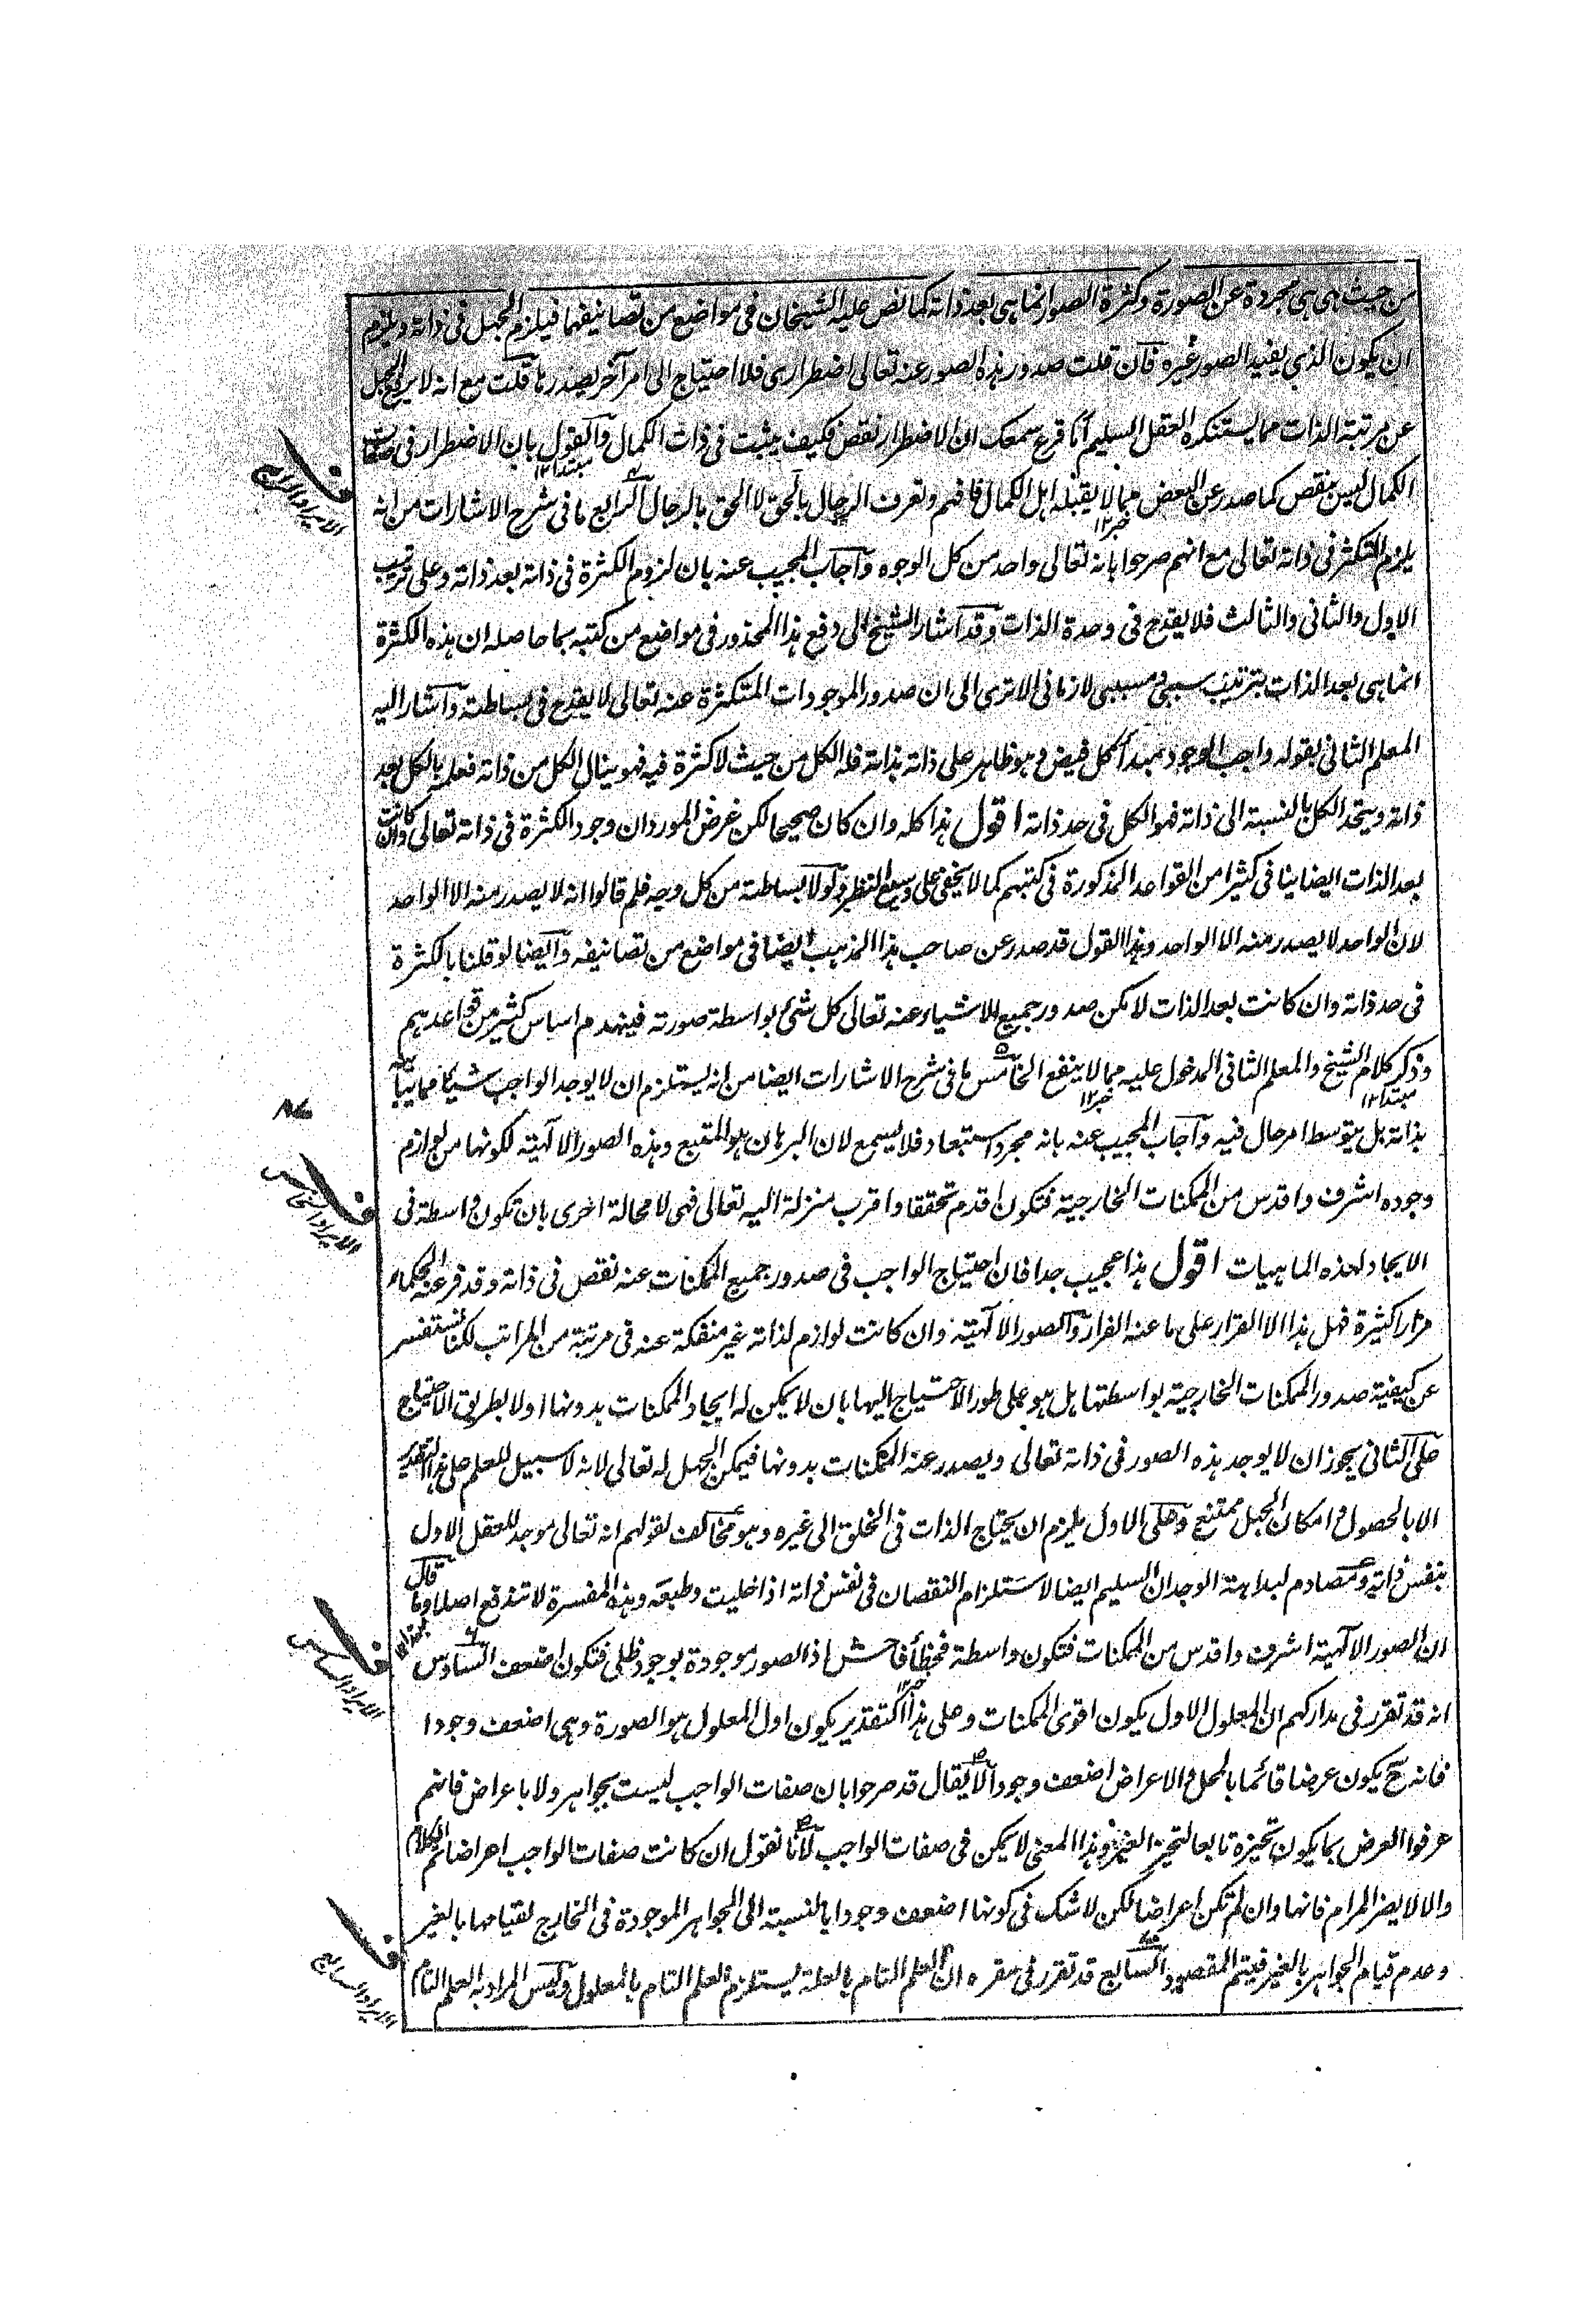 من حيث هى هى مجردة عن الصورة وكثرة الصور انما هى بعد ذاته كما نص عليه الشيخان فى مواضع من تصانيفهما فيلزم الجهل فى ذاته ويلزم
ان يكون الذى يفيد الصور غيره فان قلت صدور هذه الصور عنه تعالى اضطرارى فلا احتياج الى امر آخر يصدرها قلت مع انه لا يرفع الجهل
عن مرتبة الذات مما يستنكره العقل السليم أما قرع سمعك ان الاضطرار نقص فكيف يثبت فى ذات الكمال والقول بان الاضطرار فى صفات
مبتدا ١٢
الكمال ليس بنقص كما صدر عن البعض مما لا يقبله اهل الكمال فافهم وتعرف الرجال بالحق لا الحق بالرجال الرابع ما فى شرح الاشارات من انه
خبر ١٢
الايراد الرابع
يلزم التكثر فى ذاته تعالى مع انهم صرحوا بانه تعالى واحد من كل الوجوه وآجاب المجيب عنه بان لزوم الكثرة فى ذاته بعد ذاته وعلى ترتيب
الاول والثانى والثالث فلا يقدح فى وحدة الذات وقد اشار الشيخ الى دفع هذا المحذور فى مواضع من كتبه بما حاصله ان هذه الكثرة
انما هى بعد الذات بترتيب سببى ومسببى لا زمانى الا ترى الى ان صدور الموجودات المتكثرة عنه تعالى لا يقدح فى بساطته وآشار اليه
المعلم الثانى بقوله واجب الوجود مبدأ كل فيض وهو ظاهر على ذاته بذاته فله الكل من حيث لا كثرة فيه فهو ينال الكل من ذاته فعلمه بالكل بعد
ذاته ويتحد الكل بالنسبة الى ذاته فهو الكل فى حد ذاته اقول هذا كله وان كان صحيحا لكن غرض المورد ان وجود الكثرة فى ذاته تعالى وان كانت
بعد الذات ايضا ينافى كثيرا من القواعد المذكورة فى كتبهم كما لا يخفى على وسيع النظر ولولا بساطته من كل وجه فلم قالوا انه لا يصدر منه الا الواحد
لان الواحد لا يصدر منه الا الواحد وهذا القول قد صدر عن صاحب هذا المذهب ايضا فى مواضع من تصانيفه وآيضا لو قلنا بالكثرة
فى حد ذاته وان كانت بعد الذات لامكن صدور جميع الاشياء عنه تعالى كل شئ بواسطة صورته فينهدم اساس كثير من قواعدهم
وذكر كلام الشيخ والمعلم الثانى المدخول عليه مما لا ينفع الخامس ما فى شرح الاشارات ايضا من انه يستلزم ان لا يوجد الواجب شيئا مما يباينه
مبتدا ١٢
خبر ١٢
بذاته بل بتوسط امر حال فيه وآجاب المجيب عنه بانه مجرد استبعاد فلا يسمع لان البرهان هو المتبع وهذه الصور الالٓهية لكونها من لوازم
وجوده اشرف واقدس من الممكنات الخارجية فتكون اقدم تحققا واقرب منزلة اليه تعالى فهى لا محالة احرى بان تكون واسطة فى
الايراد الخامس
الايجاد لهذه الماهيات اقول هذا عجيب جدا فان احتياج الواجب فى صدور جميع الممكنات عنه نقص فى ذاته وقد فر عنه الحكماء
مرارا كثيرة فهل هذا الا القرار على ما عنه الفرار والصور الالٓهية وان كانت لوازم لذاته غير منفكة عنه فى مرتبة من المراتب لكنا نستفسر
عن كيفية صدور الممكنات الخارجية بواسطتها هل هو على طور الاحتياج اليها بان لا يمكن له ايجاد الممكنات بدونها اولا بطريق الاحتياج
على الثانى يجوز ان لا يوجد هذه الصور فى ذاته تعالى ويصدر عنه الممكنات بدونها فيمكن الجهل له تعالى لانه لا سبيل للعلم على هذا التقدير
الا بالحصول وامكان الجهل ممتنع وعلى الاول يلزم ان يحتاج الذات فى الخلق الى غيره وهو مخالف لقولهم انه تعالى موجد للعقل الاول
بنفس ذاته ومصادم لبداهة الوجدان السليم ايضا لاستلزام النقصان فى نفس ذاته اذا خليت وطبعه وهذه المفسرة لا تندفع اصلا وما قال
مبتدا ١٢
ان الصور الالٓهية اشرف واقدس من الممكنات فتكون واسطة فخطأ فاحش اذ الصور موجودة بوجود ظلى فتكون اضعف السادس
خبر ١٢
الايراد السادس
انه قد تقرر فى مداركهم ان المعلول الاول يكون اقوى الممكنات وعلى هذا التقدير يكون اول المعلول هو الصورة وهى اضعف وجودا
فانه ح يكون عرضا قائما بالمحل والاعراض اضعف وجودا لا يقال قد صرحوا بان صفات الواجب ليست بجواهر ولا باعراض فانهم
عرفوا العرض بما يكون تحيزه تابعا لتحيز الغير وهذا المعنى لا يمكن فى صفات الواجب لانا نقول ان كانت صفات الواجب اعراضا تم الكلام
والا لا يضر المرام فانها وان لم تكن اعراضا لكن لا شك فى كونها اضعف وجودا بالنسبة الى الجواهر الموجودة فى الخارج لقيامها بالغير
وعدم قيام الجواهر بالغير فيتم المقصود السابع قد تقرر فى مقره ان العلم التام بالعلة يستلزم العلم التام بالمعلول وليس المراد به العلم التام
الايراد السابع